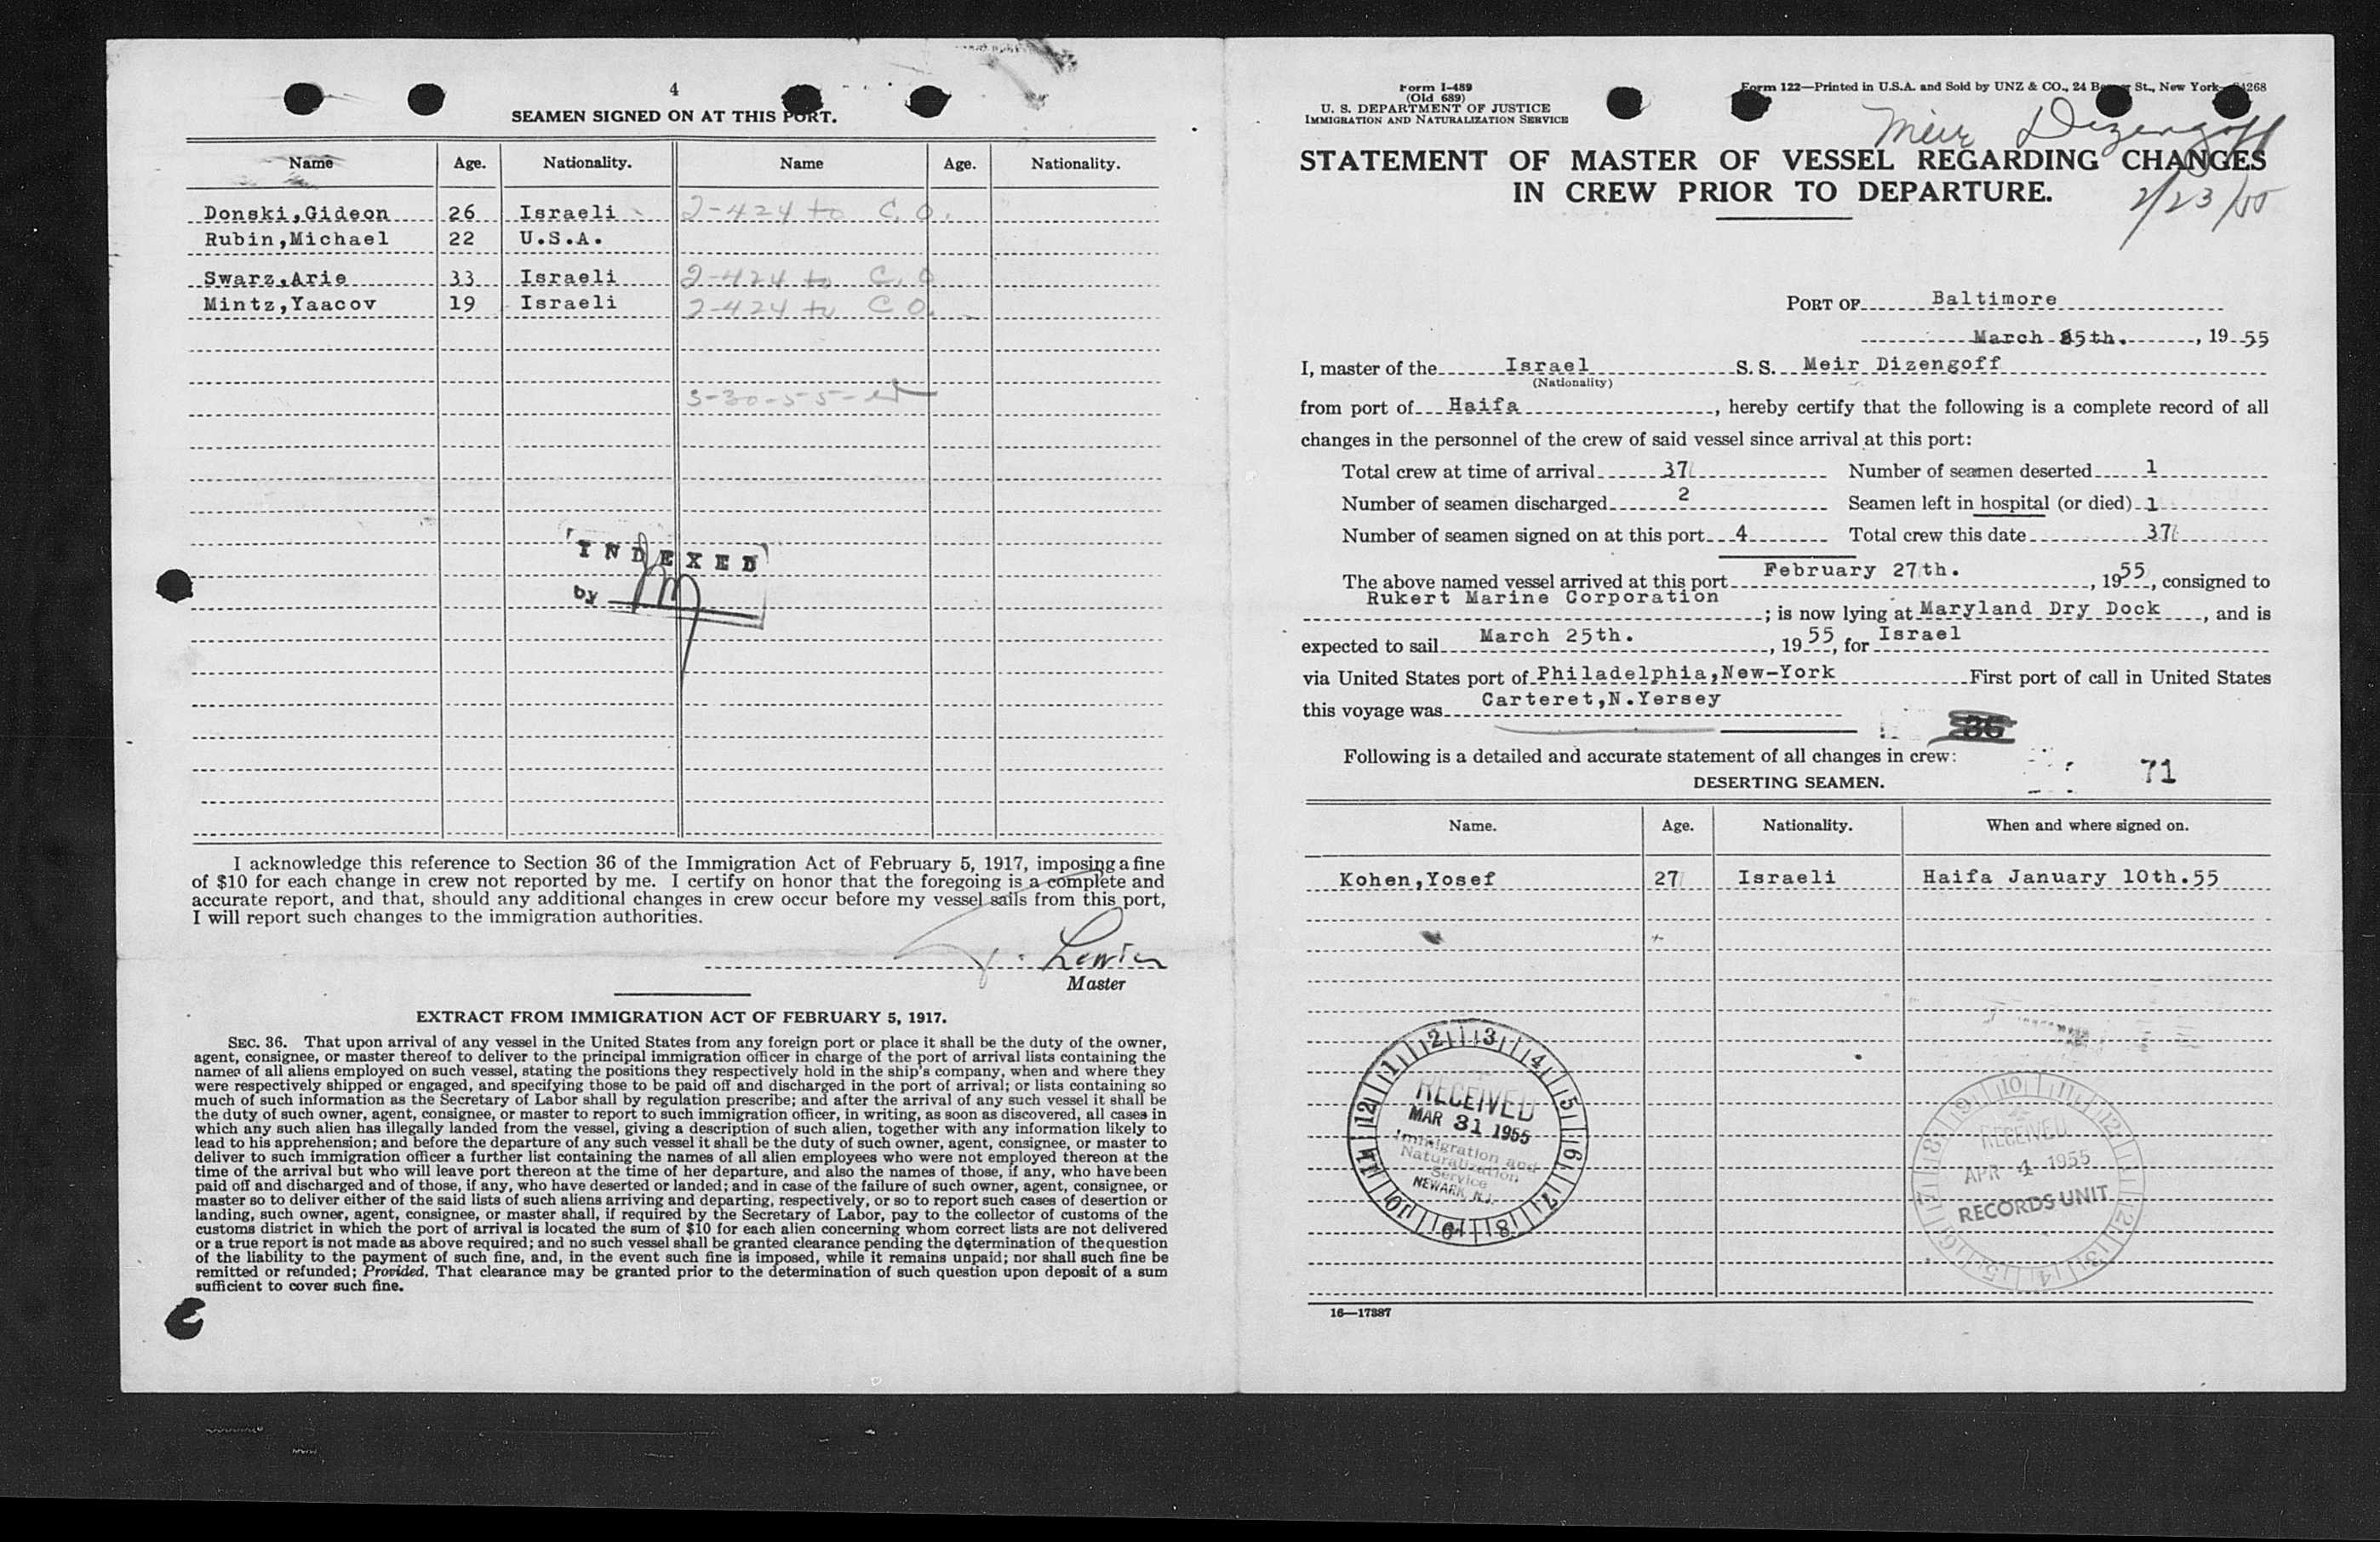 4
SEAMEN SIGNED ON AT THIS PORT.
Name Age. Nationality. Name Age. Nationality.
Donski,Gideon 26 Israeli 2-424 to C.O.
Rubin,Michael 22 U.S.A.
Swarz,Arie 33 Israeli 2-424 to C.O
Mintz,Yaacov 19 Israeli 2-424 to C O.
3-30-55-
INDEXED
by
I acknowledge this reference to Section 36 of the Immigration Act of February 5, 1917, imposing a fine
of $10 for each change in crew not reported by me. I certify on honor that the foregoing is a complete and
accurate report, and that, should any additional changes in crew occur before my vessel sails from this port,
I will report such changes to the immigration authorities.
Master
EXTRACT FROM IMMIGRATION ACT OF FEBRUARY 5, 1917.
SEC. 36. That upon arrival of any vessel in the United States from any foreign port or place it shall be the duty of the owner,
agent, consignee, or master thereof to deliver to the principal immigration officer in charge of the port of arrival lists containing the
names of all aliens employed on such vessel, stating the positions they respectively hold in the ship's company, when and where they
were respectively shipped or engaged, and specifying those to be paid off and discharged in the port of arrival; or lists containing so
much of such information as the Secretary of Labor shall by regulation prescribe; and after the arrival of any such vessel it shall be
the duty of such owner, agent, consignee, or master to report to such immigration officer, in writing, as soon as discovered, all cases in
which any such alien has illegally landed from the vessel, giving a description of such alien, together with any information likely to
lead to his apprehension; and before the departure of any such vessel it shall be the duty of such owner, agent, consignee, or master to
deliver to such immigration officer a further list containing the names of all alien employees who were not employed thereon at the
time of the arrival but who will leave port thereon at the time of her departure, and also the names of those, if any, who have been
paid off and discharged and of those, if any, who have deserted or landed; and in case of the failure of such owner, agent, consignee, or
master so to deliver either of the said lists of such aliens arriving and departing, respectively, or so to report such cases of desertion or
landing, such owner, agent, consignee, or master shall, if required by the Secretary of Labor, pay to the collector of customs of the
customs district in which the port of arrival is located the sum of $10 for each alien concerning whom correct lists are not delivered
or a true report is not made as above required; and no such vessel shall be granted clearance pending the determination of the question
of the liability to the payment of such fine, and, in the event such fine is imposed, while it remains unpaid; nor shall such fine be
remitted or refunded; Provided, That clearance may be granted prior to the determination of such question upon deposit of a sum
sufficient to cover such fine.
Form I-489
(Old 689)
U. S. DEPARTMENT OF JUSTICE
IMMIGRATION AND NATURALIZATION SERVICE
Form 122—Printed in U.S.A. and Sold by UNZ & CO., 24 St., New York
Meir Dizengoff
STATEMENT OF MASTER OF VESSEL REGARDING CHANGES
IN CREW PRIOR TO DEPARTURE.
2/23/55
PORT OF Baltimore
March 25th. , 19 55
I, master of the Israel S. S. Meir Dizengoff
(Nationality)
from port of Haifa , hereby certify that the following is a complete record of all
changes in the personnel of the crew of said vessel since arrival at this port:
Total crew at time of arrival 37 Number of seamen deserted 1
Number of seamen discharged 2 Seamen left in hospital (or died) 1
Number of seamen signed on at this port 4 Total crew this date 37
The above named vessel arrived at this port February 27th. , 1955, consigned to
Rukert Marine Corporation ; is now lying at Maryland Dry Dock , and is
expected to sail March 25th. , 19 55, for Israel
via United States port of Philadelphia,New-York First port of call in United States
this voyage was Carteret,N.Yersey
36
Following is a detailed and accurate statement of all changes in crew:
71
DESERTING SEAMEN.
Name. Age. Nationality. When and where signed on.
Kohen,Yosef 27 Israeli Haifa January 10th.55
1 2 3 4 5 6 7 8 9 10 11 12
RECEIVED
MAR 31 1955
Immigration and
Naturalization
Service
NEWARK, N.J.
9 10 11 12 1 2 3 4 5 6 7 8
RECEIVED
APR 4 1955
RECORDS UNIT
16—17387